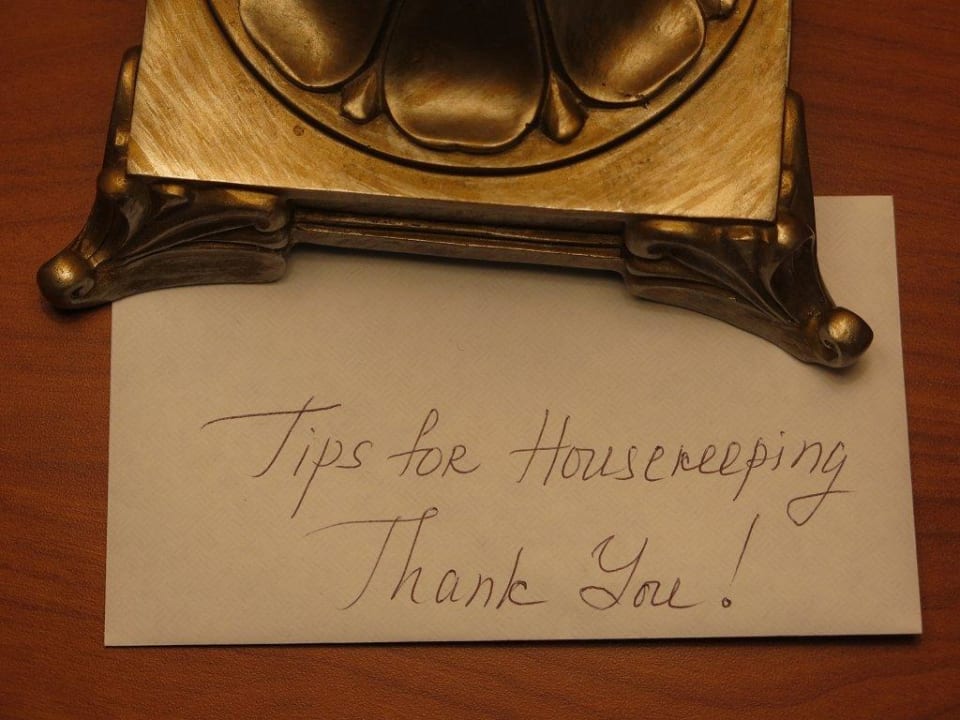 Tips for Housekeeping
Thank You!